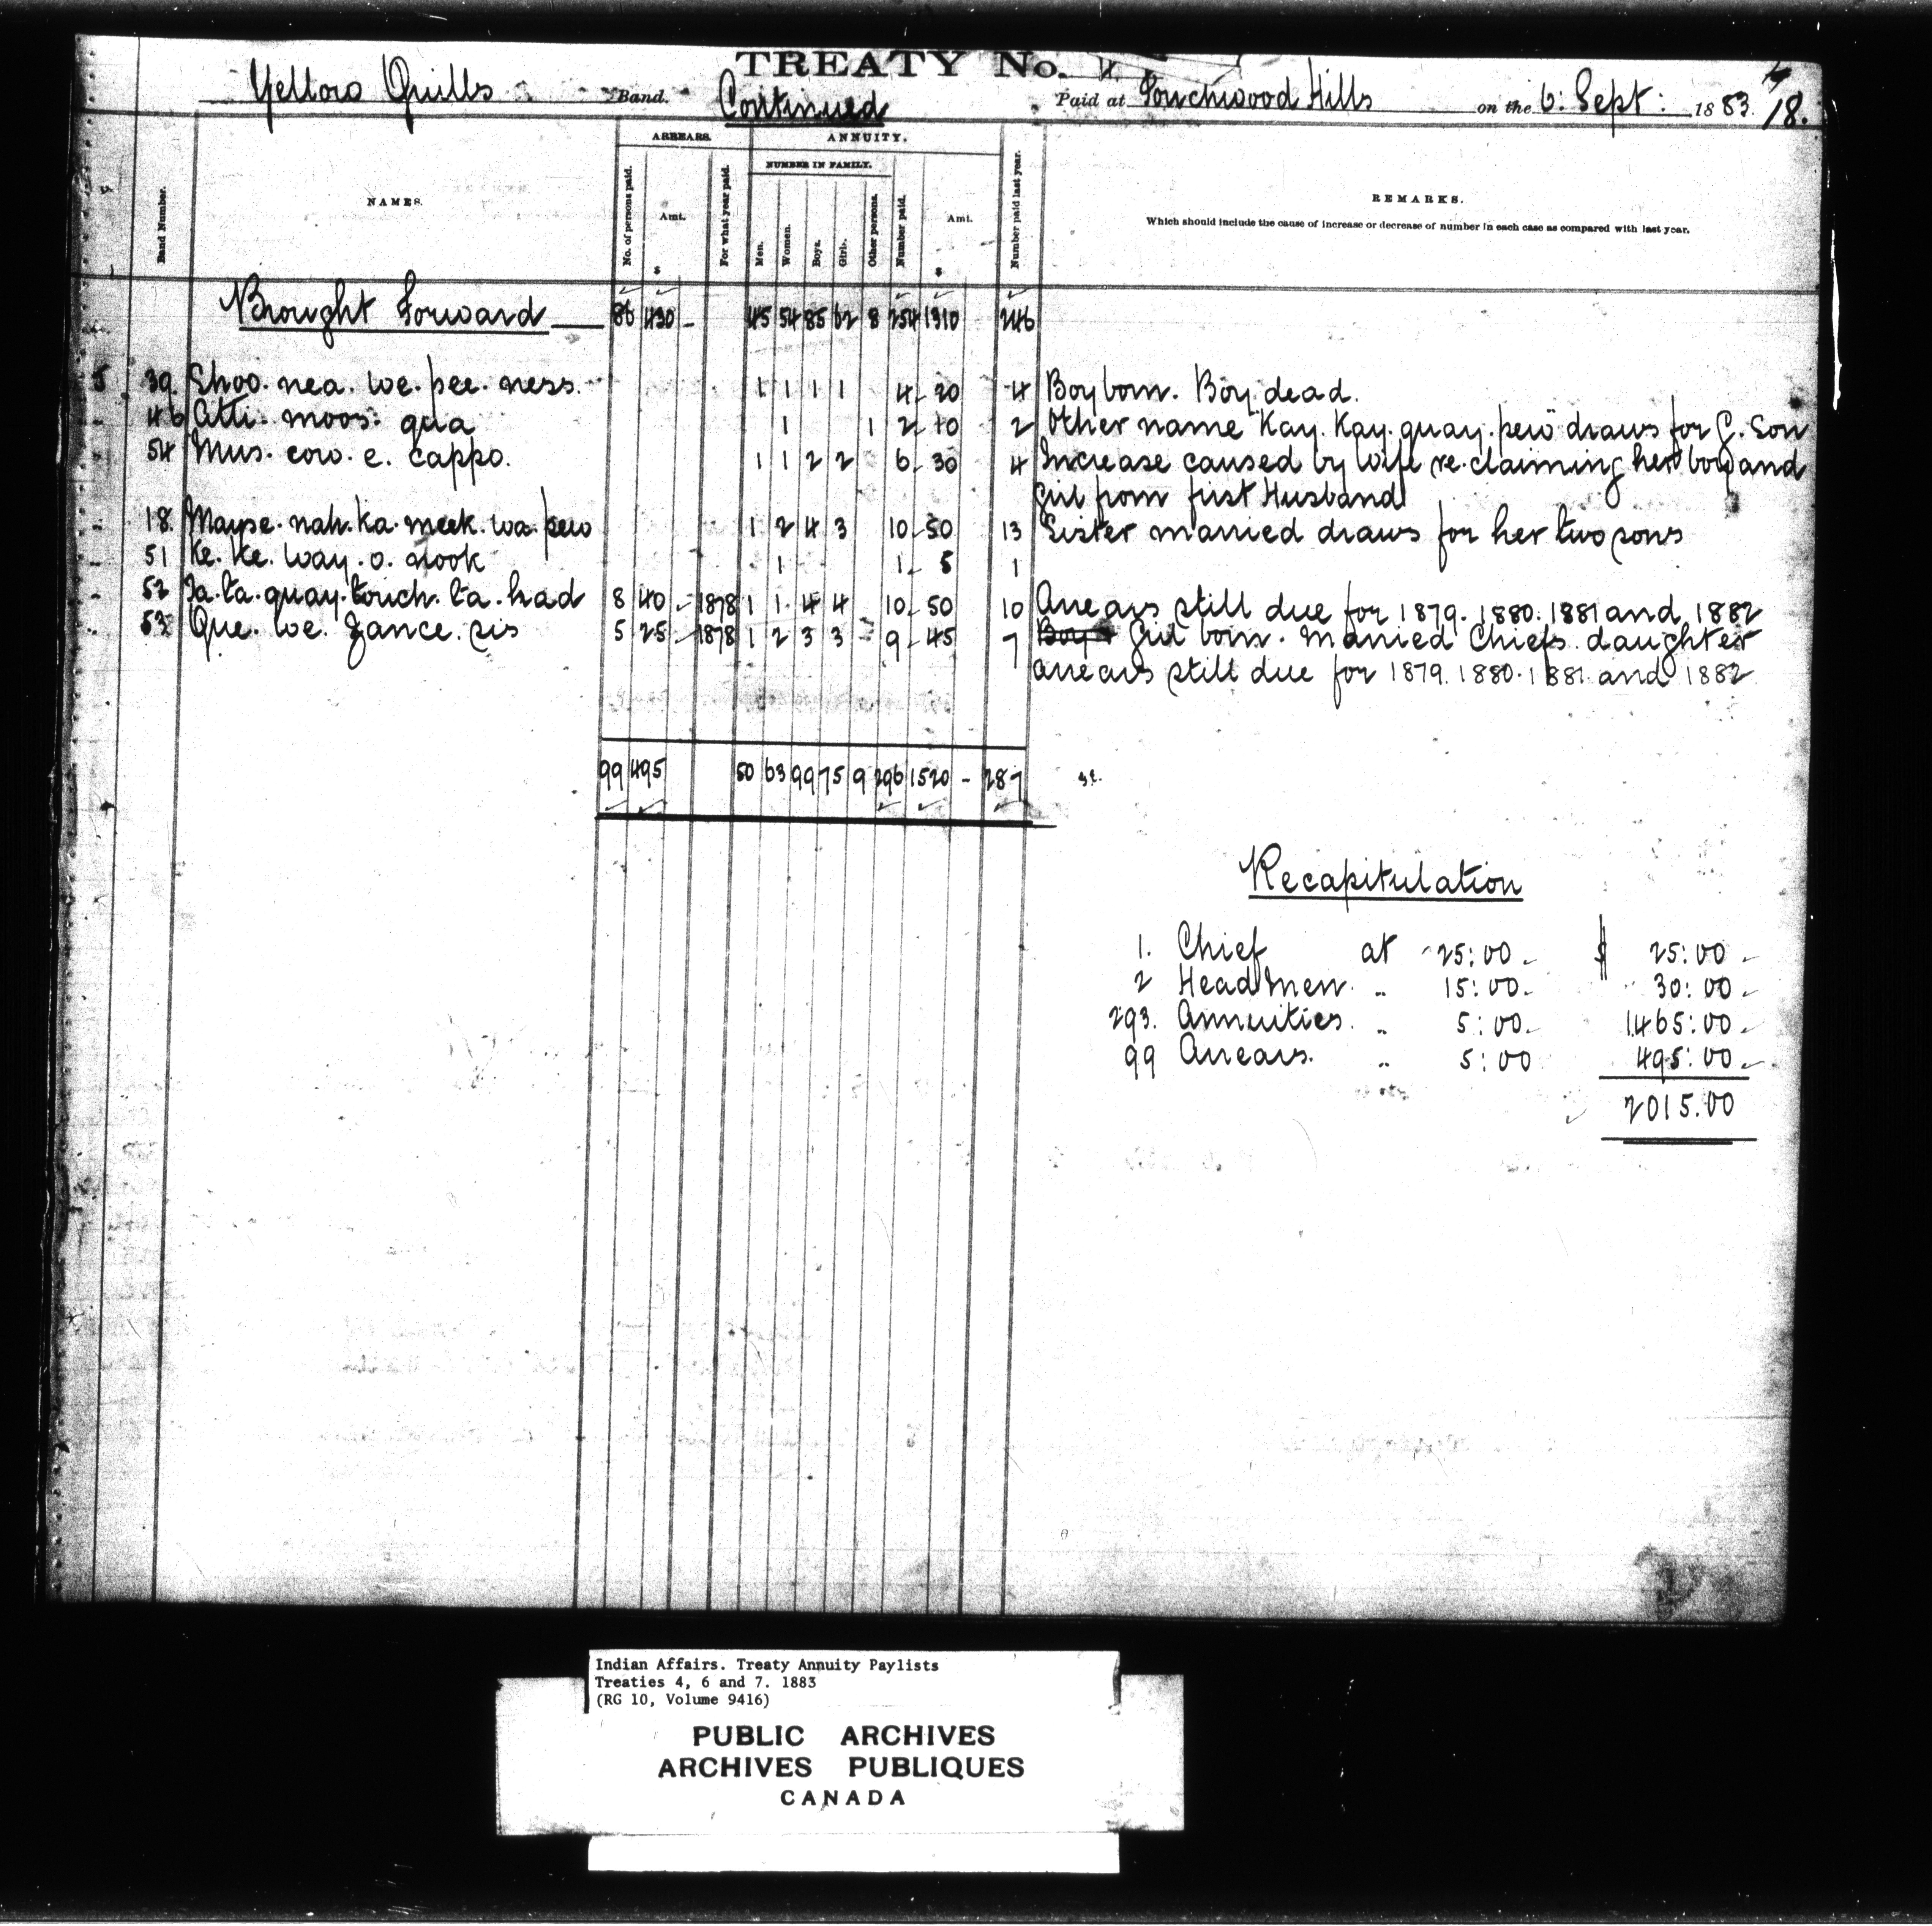 TREATY No. 4
Yellow Quills Band. Continued Paid at Touchwood Hills on the 6: Sept: 1883. 18.
ARREARS. ANNUITY.
NUMBER IN FAMILY.
Band Number. NAMES. No. of persons paid. Amt. $ For what year paid. Men. Women. Boys. Girls. Other persons. Number paid. Amt. $ Number paid last year. REMARKS.
Which should include the cause of increase or decrease of number in each case as compared with last year.
Brought Forward 86 430 - 45 54 85 62 8 254 1310 246
39. Shoo. nea. we. pee. ness. 1 1 1 1 4 - 20 4 Boy born. Boy dead.
46 Atti. moos: qua 1 1 2 - 10 2 Other name "Kay. Kay. quay. pew" draws for G. Son
54 Mus. cow. e. cappo. 1 1 2 2 6 - 30 4 Increase caused by wife re.claiming her boy and
Girl from first Husband
18. Mayse. nah. ka. meek. wa. pew 1 2 4 3 10 - 50 13 Sister married draws for her two sons
51 Ke. Ke. way. o. nook 1 1 - 5 1
52 Ta. ta. quay. touch. ta. had 8 40 - 1878 1 1 4 4 10 - 50 10 Arrears still due for 1879. 1880. 1881 and 1882
53 Que. we. zance. sis 5 25 - 1878 1 2 3 3 - 9 - 45 7 Boy Girl born. Married Chiefs daughter
arrears still due for 1879. 1880. 1881 and 1882
99 495 50 63 99 75 9 296 1520 - 287
Recapitulation
1. Chief at 25:00 $ 25:00
2 Head Men " 15:00 30:00
293. Annuities. " 5:00 1465:00
99 Arrears. " 5:00 495:00
2015.00
Indian Affairs. Treaty Annuity Paylists
Treaties 4, 6 and 7. 1883
(RG 10, Volume 9416)
PUBLIC ARCHIVES
ARCHIVES PUBLIQUES
CANADA